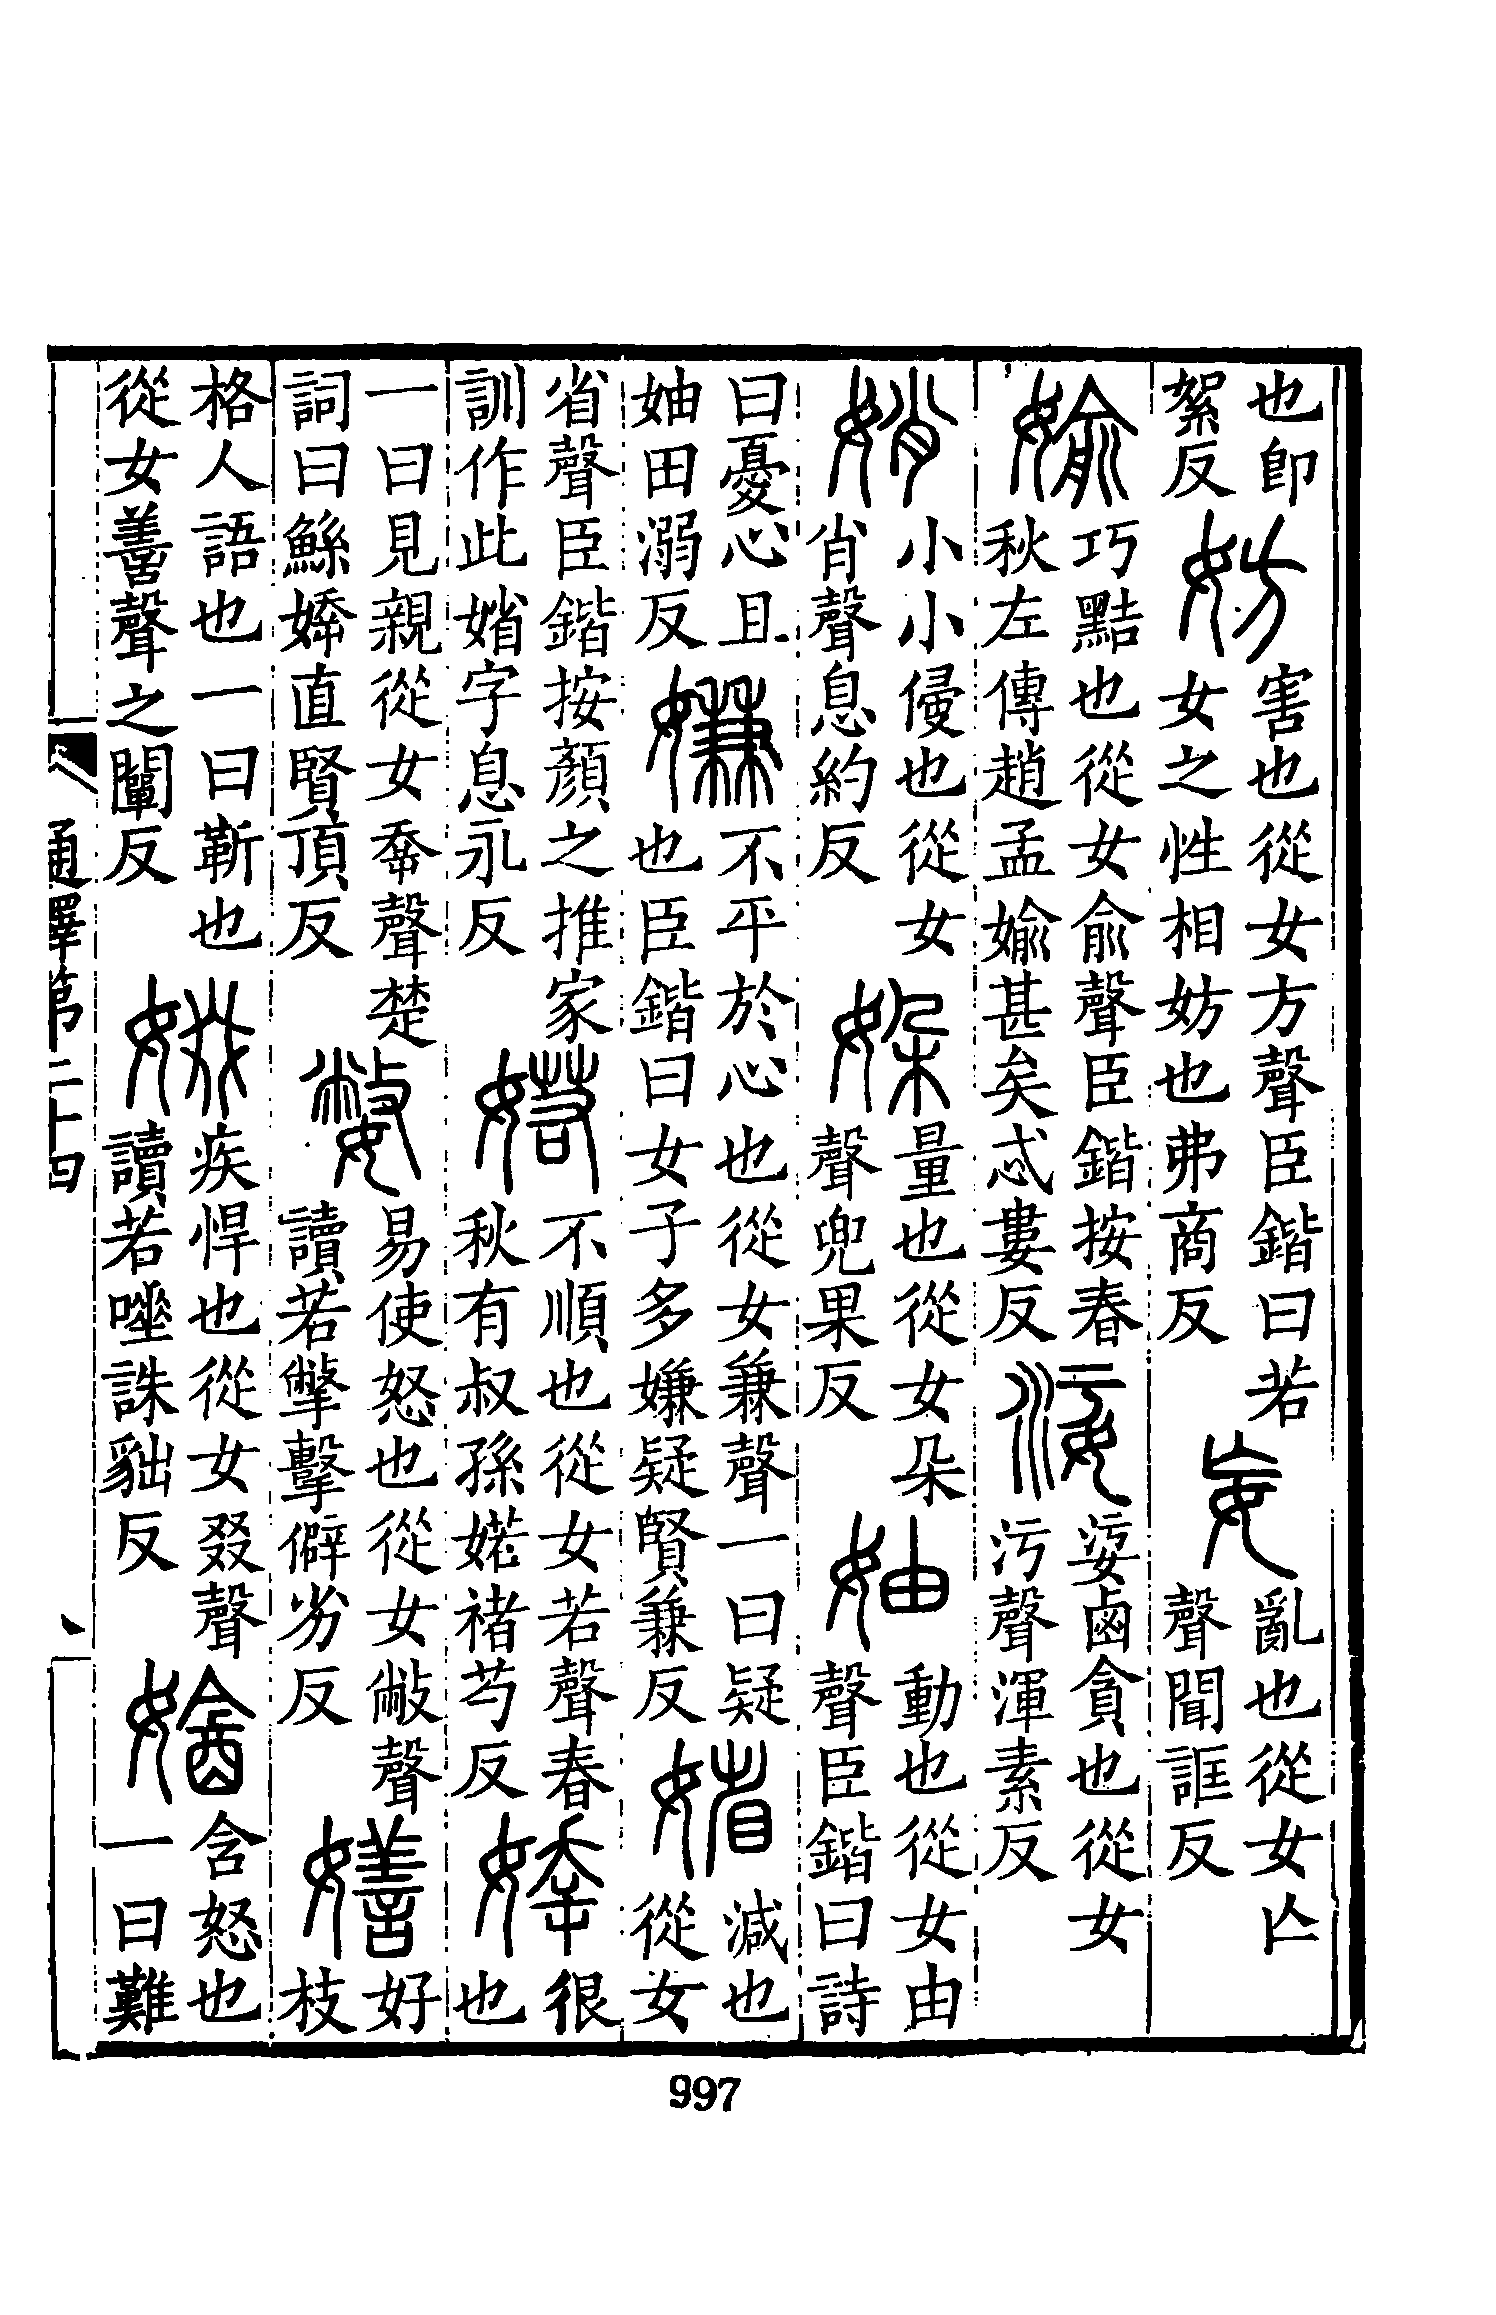 也卽絮反 妨 害也從女方聲臣鍇曰若女之性相妨也弗商反 妄 亂也從女亾聲聞誆反
媮 巧黠也從女俞聲臣鍇按春秋左傳趙孟媮甚矣忒婁反 鹵貪也從女污聲渾素反
娋 小小侵也從女肖聲息約反 㛊 量也從女朵聲兜果反 妯 動也從女由聲臣鍇曰詩
曰憂心且妯田溺反 嫌 不平於心也從女兼聲一曰疑也臣鍇曰女子多嫌疑賢兼反 媘 減也從女
省聲臣鍇按顏之推家訓作此媘字息永反 婼 不順也從女若聲春秋有叔孫婼褚芍反 婞 很也
一曰見親從女㚔聲楚詞曰鯀婞直賢頂反 嫳 易使怒也從女敝聲讀若擊僻劣反 嫸 好枝
格人語也一曰靳也從女善聲之闡反 娺 疾悍也從女叕聲讀若唾誅貀反 含怒也一曰難
通釋第二十四
997